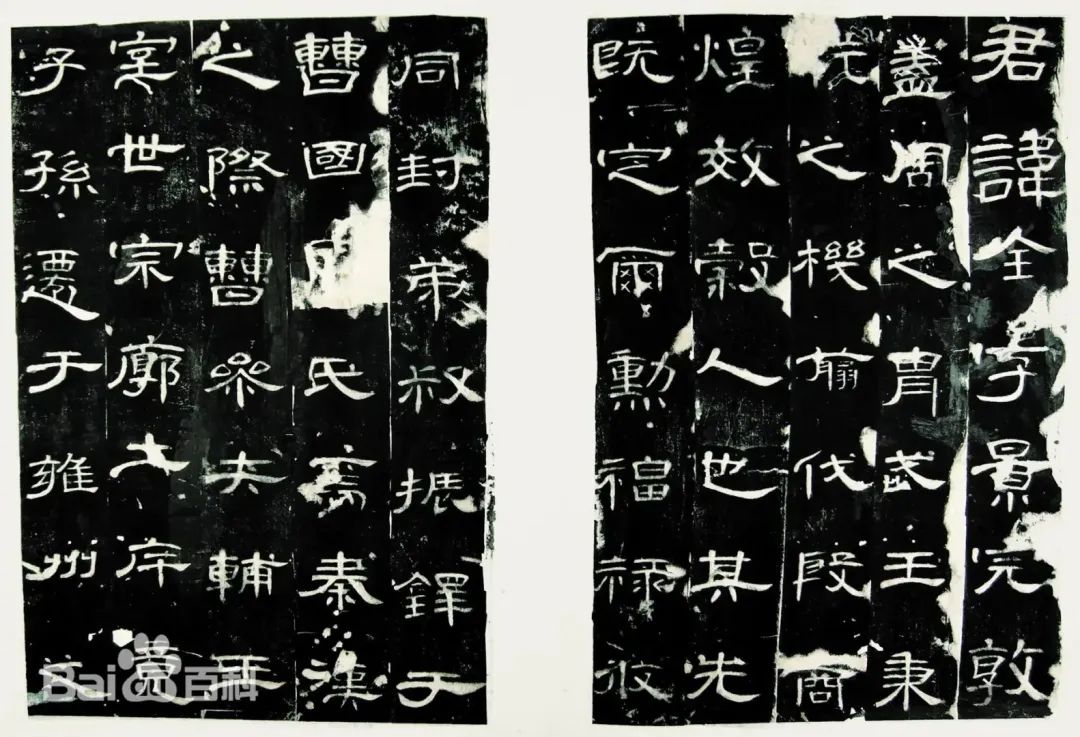 君諱全字景完敦
蓋周之胄武王秉
之機翦伐殷商
煌效穀人也其先
既定爾勳福祿攸
同封弟叔振鐸于
曹國因氏焉秦漢
之際曹參夾輔王
室世宗廓土斥竟
子孫遷于雍州
Bai百科